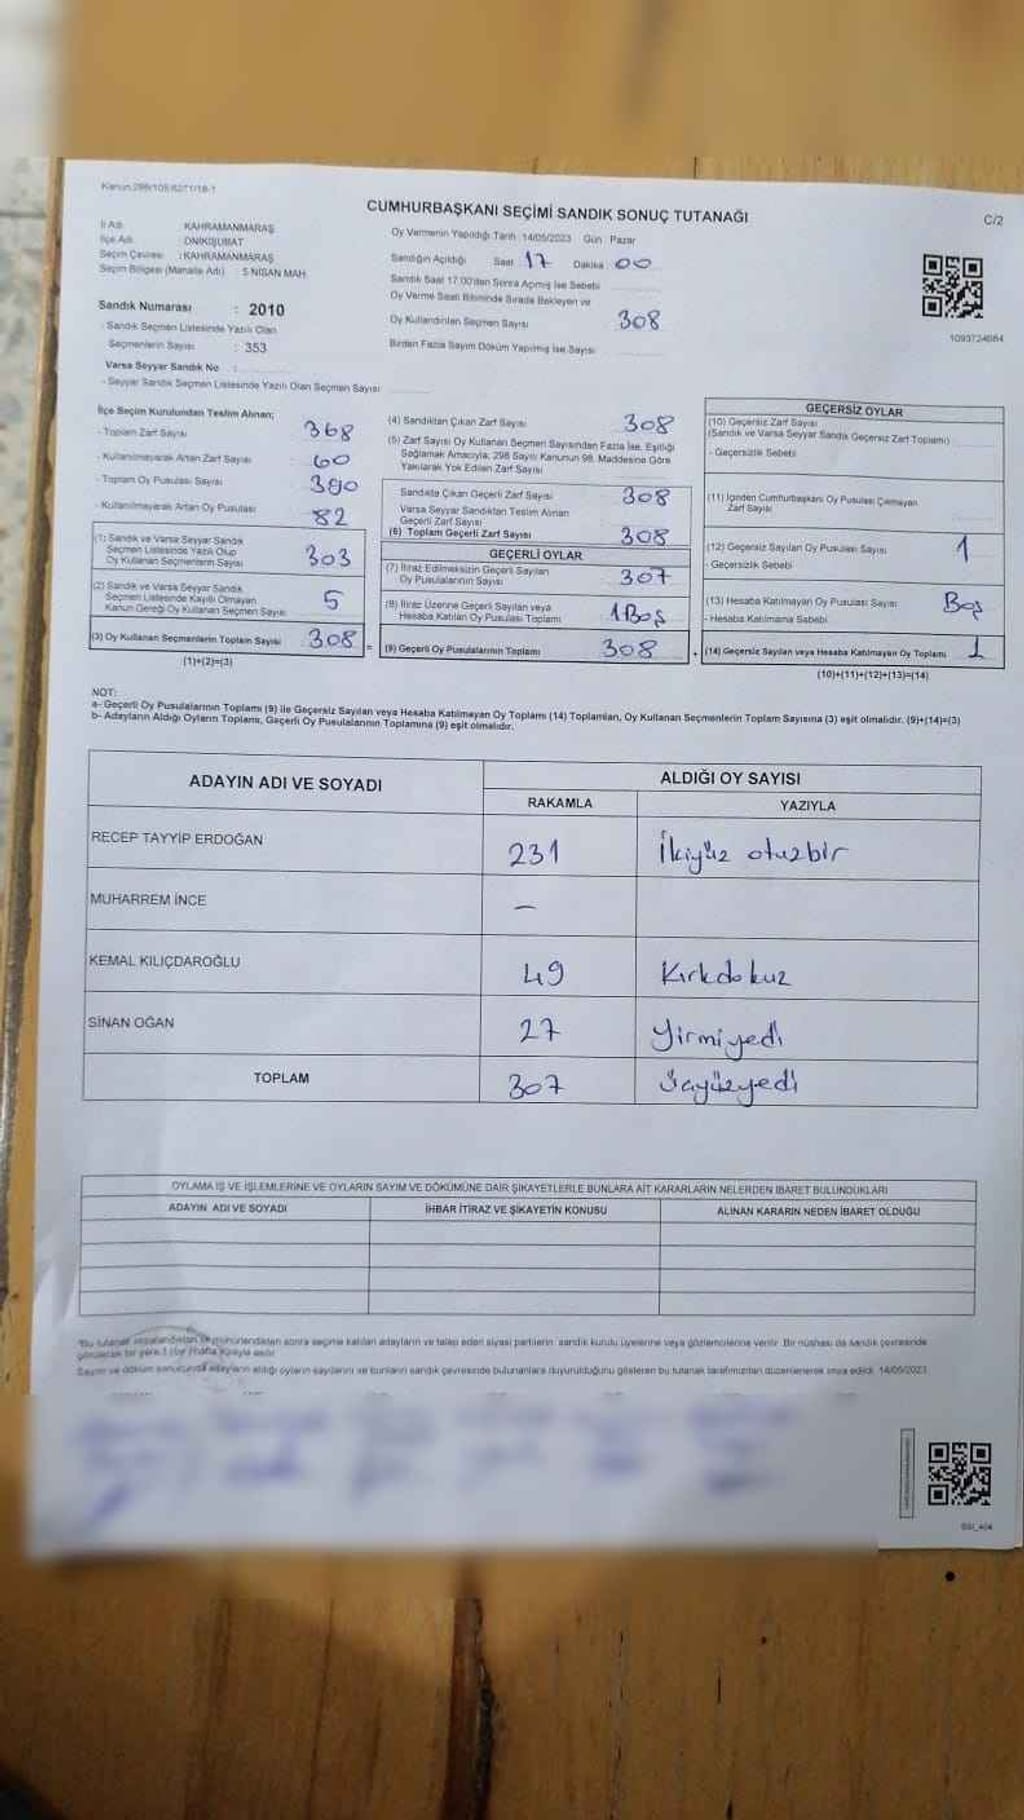 Kanun 298/105/6271/18-1
CUMHURBAŞKANI SEÇİMİ SANDIK SONUÇ TUTANAĞI
C/2
İl Adı : KAHRAMANMARAŞ
İlçe Adı : ONİKİŞUBAT
Seçim Çevresi : KAHRAMANMARAŞ
Seçim Bölgesi (Mahalle Adı) 5 NİSAN MAH.
Sandık Numarası : 2010
- Sandık Seçmen Listesinde Yazılı Olan
Seçmenlerin Sayısı : 353
Varsa Seyyar Sandık No :
- Seyyar Sandık Seçmen Listesinde Yazılı Olan Seçmen Sayısı
Oy Vermenin Yapıldığı Tarih 14/05/2023 Gün Pazar
Sandığın Açıldığı Saat 17 Dakika 00
Sandık Saat 17:00'den Sonra Açmış İse Sebebi
Oy Verme Saati Bitiminde Sırada Bekleyen ve
Oy Kullandırılan Seçmen Sayısı 308
Birden Fazla Sayım Döküm Yapılmış İse Sayısı
İlçe Seçim Kurulundan Teslim Alınan;
- Toplam Zarf Sayısı 368
- Kullanılmayarak Artan Zarf Sayısı 60
- Toplam Oy Pusulası Sayısı 390
- Kullanılmayarak Artan Oy Pusulası 82
(1) Sandık ve Varsa Seyyar Sandık
Seçmen Listesinde Yazılı Olup
Oy Kullanan Seçmenlerin Sayısı 303
(2) Sandık ve Varsa Seyyar Sandık
Seçmen Listesinde Kayıtlı Olmayan
Kanun Gereği Oy Kullanan Seçmen Sayısı 5
(3) Oy Kullanan Seçmenlerin Toplam Sayısı 308
(1)+(2)=(3)
(4) Sandıktan Çıkan Zarf Sayısı 308
(5) Zarf Sayısı Oy Kullanan Seçmen Sayısından Fazla İse, Eşitliği
Sağlamak Amacıyla; 298 Sayılı Kanunun 98. Maddesine Göre
Yakılarak Yok Edilen Zarf Sayısı
Sandıkta Çıkan Geçerli Zarf Sayısı 308
Varsa Seyyar Sandıktan Teslim Alınan
Geçerli Zarf Sayısı
(6) Toplam Geçerli Zarf Sayısı 308
GEÇERLİ OYLAR
(7) İtiraz Edilmeksizin Geçerli Sayılan
Oy Pusulalarının Sayısı 307
(8) İtiraz Üzerine Geçerli Sayılan veya
Hesaba Katılan Oy Pusulası Toplamı 1Boş
= (9) Geçerli Oy Pusulalarının Toplamı 308
GEÇERSİZ OYLAR
(10) Geçersiz Zarf Sayısı
(Sandık ve Varsa Seyyar Sandık Geçersiz Zarf Toplamı)
- Geçersizlik Sebebi
(11) İçinden Cumhurbaşkanı Oy Pusulası Çıkmayan
Zarf Sayısı
(12) Geçersiz Sayılan Oy Pusulası Sayısı 1
- Geçersizlik Sebebi
(13) Hesaba Katılmayan Oy Pusulası Sayısı Boş
- Hesaba Katılmama Sebebi
+ (14) Geçersiz Sayılan veya Hesaba Katılmayan Oy Toplamı 1
(10)+(11)+(12)+(13)=(14)
NOT:
a- Geçerli Oy Pusulalarının Toplamı (9) ile Geçersiz Sayılan veya Hesaba Katılmayan Oy Toplamı (14) Toplamları, Oy Kullanan Seçmenlerin Toplam Sayısına (3) eşit olmalıdır. (9)+(14)=(3)
b- Adayların Aldığı Oyların Toplamı, Geçerli Oy Pusulalarının Toplamına (9) eşit olmalıdır.
ADAYIN ADI VE SOYADI ALDIĞI OY SAYISI
RAKAMLA YAZIYLA
RECEP TAYYİP ERDOĞAN 231 İkiyüz otuzbir
MUHARREM İNCE –
KEMAL KILIÇDAROĞLU 49 Kırkdokuz
SİNAN OĞAN 27 Yirmiyedi
TOPLAM 307 üçyüzyedi
OYLAMA İŞ VE İŞLEMLERİNE VE OYLARIN SAYIM VE DÖKÜMÜNE DAİR ŞİKAYETLERLE BUNLARA AİT KARARLARIN NELERDEN İBARET BULUNDUKLARI
ADAYIN ADI VE SOYADI İHBAR İTİRAZ VE ŞİKAYETİN KONUSU ALINAN KARARIN NEDEN İBARET OLDUĞU
sonra seçime katılan adayların ve talep eden siyasi partilerin sandık kurulu üyelerine veya gözlemcilerine verilir. Bir nüshası da sandık çevresinde
Sayım ve döküm sonucunda adayların aldığı oyların sayılarını ve bunların sandık çevresinde bulunanlara duyurulduğunu gösteren bu tutanak tarafımızdan düzenlenerek imza edildi. 14/05/2023